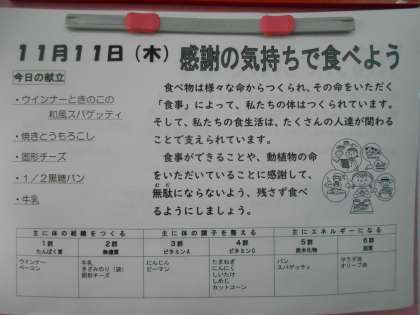 11月11日（木） 感謝の気持ちで食べよう
今日の献立
・ウインナーときのこの
和風スパゲッティ
・焼きとうもろこし
・固形チーズ
・１／２黒糖パン
・牛乳
食べ物は様々な命からつくられ、その命をいただく
「食事」によって、私たちの体はつくられています。
そして、私たちの食生活は、たくさんの人達が関わる
ことで支えられています。
食事ができることや、動植物の命
をいただいていることに感謝して、
無駄にならないよう、残さず食べ
るようにしましょう。
主に体の組織をつくる 主に体の調子を整える 主にエネルギーになる
1群 2群 3群 4群 5群 6群
たんぱく質 無機質 ビタミンA ビタミンC 炭水化物 脂質
ウインナー 牛乳 にんじん たまねぎ パン サラダ油
ベーコン きざみのり（袋） ピーマン にんにく スパゲティ オリーブ油
固形チーズ しいたけ
しめじ
カットコーン